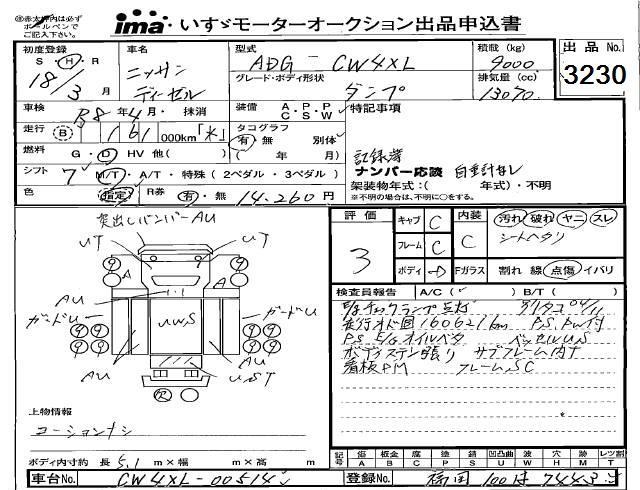 ㊟赤太枠内は必ず
ボールペンで
ご記入下さい。
ima いすゞモーターオークション出品申込書
初度登録 S・H・R 18/3月
車名 ニッサン ディーゼル
型式 ADG - CW4XL
グレード・ボディ形状 ダンプ
積載 (kg) 9000
排気量 (cc) 13070
出品No. 3230
車検 R8年4月・抹消
装備 A・P・P C・S・W
特記事項
走行 (B) 161 000km「*」
タコグラフ 有・無 別体
( 年 月)
記録簿
燃料 G・D・HV 他( )
ナンバー応談 自重計なし
シフト 7 M/T・A/T・特殊(2ペダル・3ペダル)
架装物年式:( 年式)・不明
※不明の場合は、不明に○をする。
色 指定 R券 有・無 14,260円
突出しバンパーAU
UT UT
A A
AU
ガードU ガードU
UWS
AU AU
UST
評価 3
キャブ C
フレーム C
ボディ D
内装 C
Fガラス
汚れ 破れ ヤニ スレ
シートヘタリ
割れ 線 点傷 イバリ
検査員報告 A/C( ✓ ) B/T( )
E/gチェックランプ点灯
走行メド図160621km P.S. P.W付
P.S E/gオイルベタ ベッセルUS
ボディステン張り サブフレーム内サ
看板PM フレームSC
上物情報
コーションナシ
ボディ内寸約 長 5.1 m×幅 m×高 m
記号 傷A 板金B 腐C 塗P 錆S 凹凸曲U 波W 穴H 跡M レツ割T
車台No. CW4XL-00514
登録No. 福岡 100 は 7443